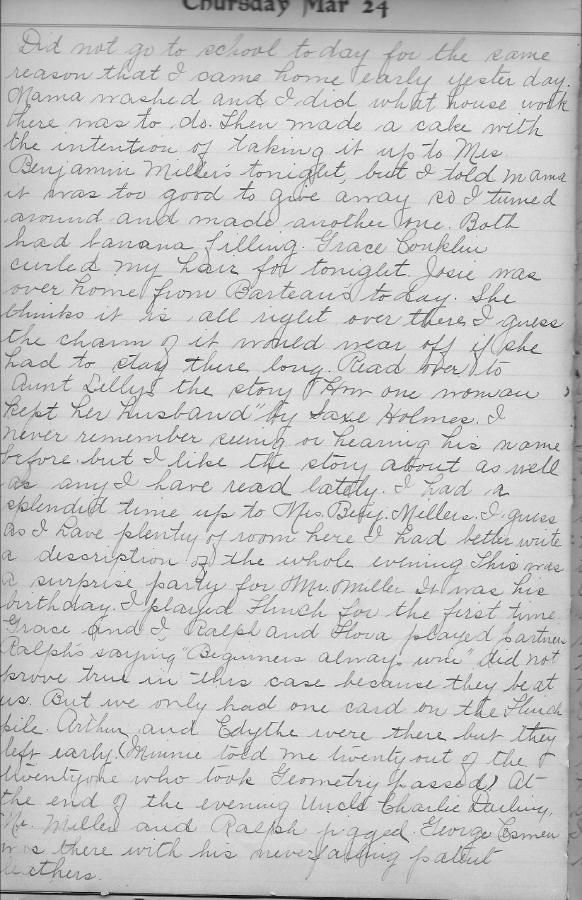 Thursday Mar 24
Did not go to school today for the same
reason that I came home early yester day.
Mama washed and I did what house work
there was to do. Then made a cake with
the intention of taking it up to Mrs.
Benjamin Miller's tonight, but I told mama
it was too good to give away so I turned
around and made another one. Both
had banana filling. Grace Conklin
curled my hair for tonight. Josie was
over home from Barteau's today. She
thinks it is all right over there, I guess
the charm of it would wear off if she
had to stay there long. Read over to
Aunt Lilly's the story "How one woman
kept her husband" by Saxe Holmes. I
never remember seeing or hearing his name
before but I like the story about as well
as any I have read lately. I had a
splendid time up to Mrs. Benj. Millers. I guess
as I have plenty of room here I had better write
a description of the whole evening This was
a surprise party for Mr. Miller It was his
birthday. I played Flinch for the first time
Grace and I, Ralph and Flova played partners
Ralph's saying "Beginners always win" did not
prove true in this case because they beat
us. But we only had one card on the Flinch
pile. Arthur and Edythe were there but they
left early. (Minnie told me twenty out of the
twentyone who took Geometry passed) At
the end of the evening Uncle Charlie Darling,
Mr. Miller and Ralph jigged. George Esmen
was there with his neverfailing patent
leathers.